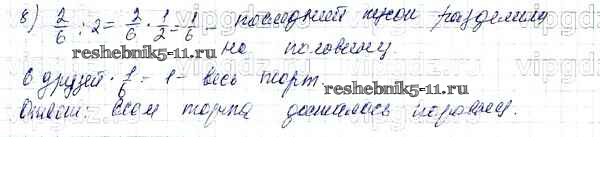 8) 2/6 : 2 = 2/6 · 1/2 = 1/6 – последний кусок разделили
на половину.
reshebnik5-11.ru
6 друзей · 1/6 = 1 – весь торт.
reshebnik5-11.ru
Ответ: всем торта досталось поровну.